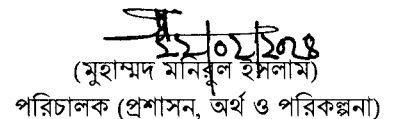 ২২/০২/২০২৪
(মুহাম্মদ মনিরুল ইসলাম)
পরিচালক (প্রশাসন, অর্থ ও পরিকল্পনা)